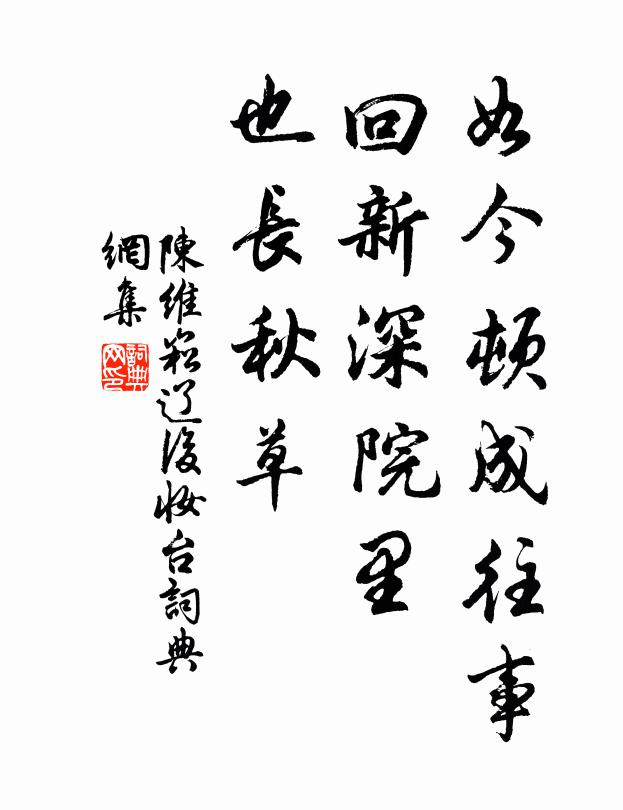 如今頓成往事
回新深院里
也長秋草
陳維崧辽後妆台詞典
網集
詞典
网印